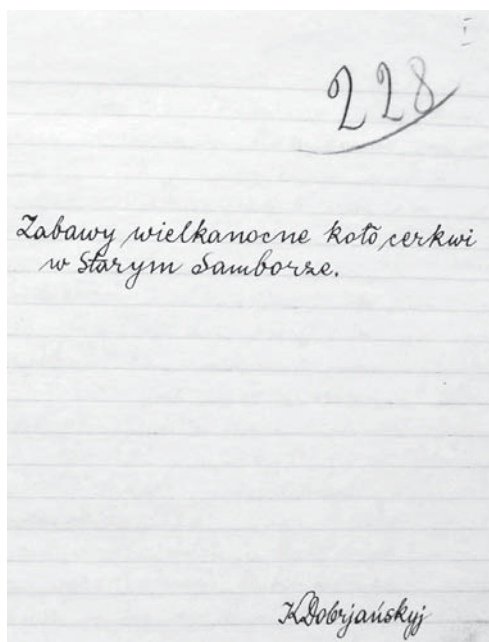 I
228
Zabawy wielkanocne koło cerkwi
w Starym Samborze.
KDobrjańskyj